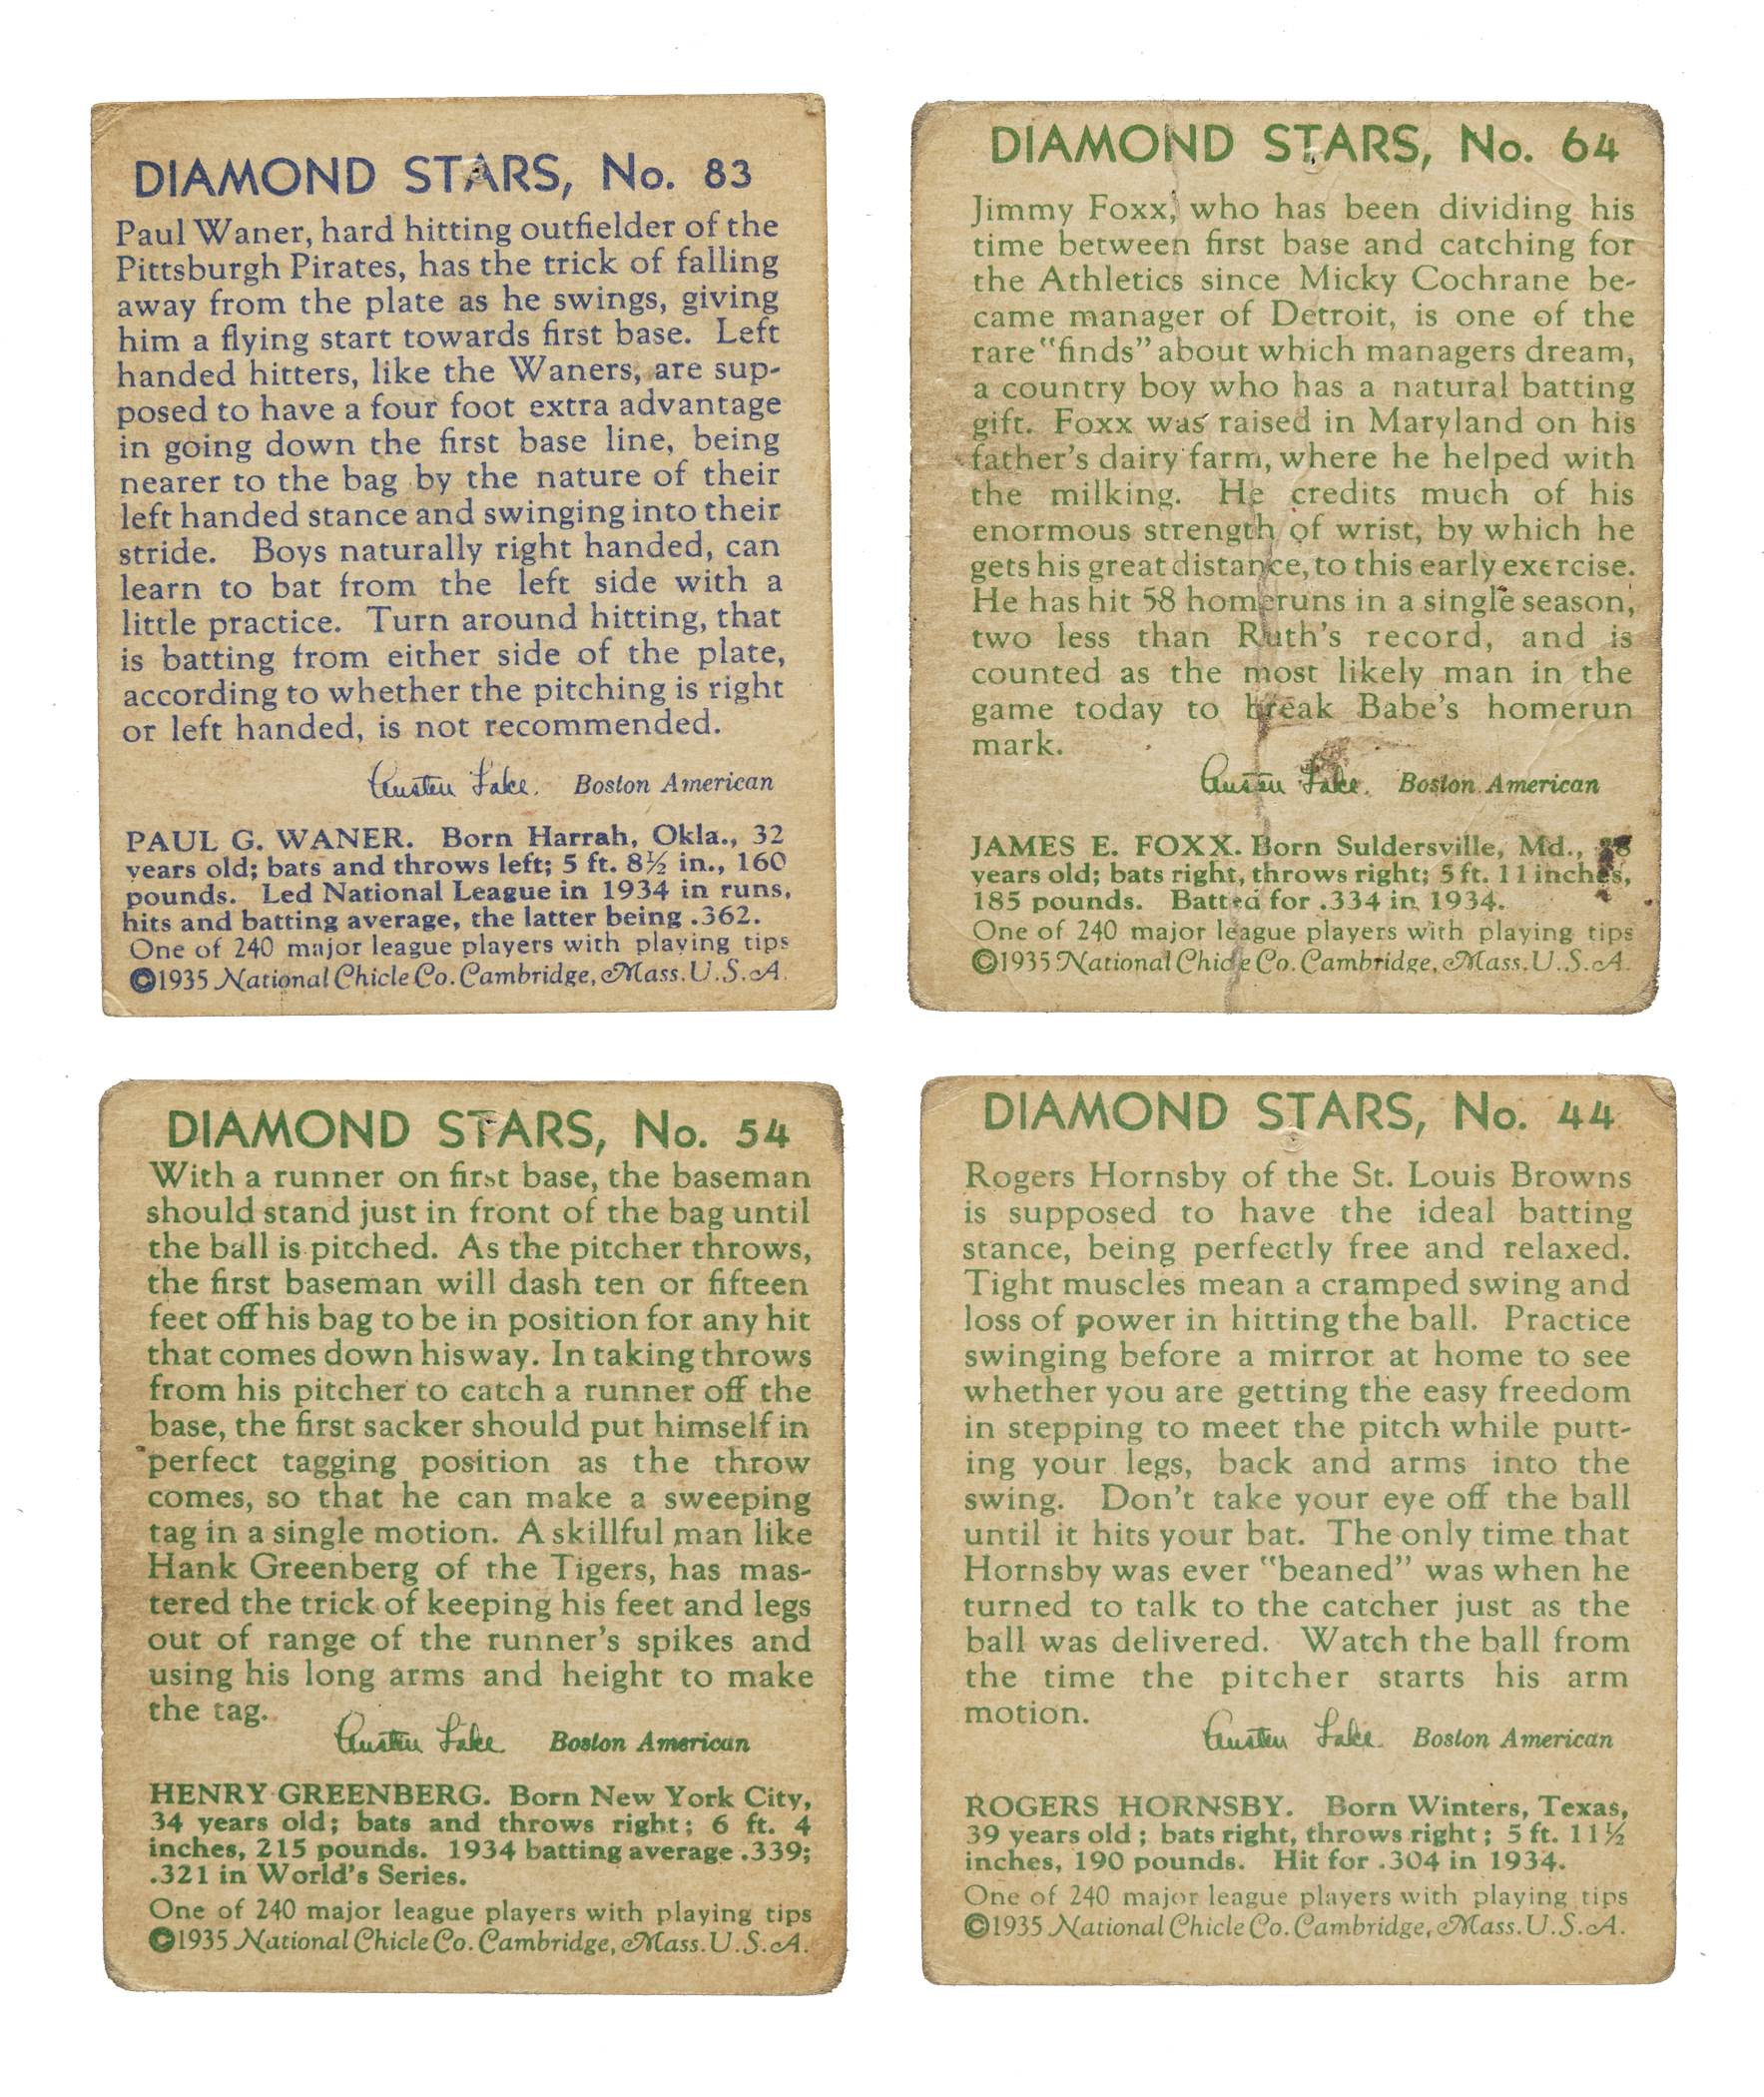 DIAMOND STARS, No. 83
Paul Waner, hard hitting outfielder of the
Pittsburgh Pirates, has the trick of falling
away from the plate as he swings, giving
him a flying start towards first base. Left
handed hitters, like the Waners, are sup-
posed to have a four foot extra advantage
in going down the first base line, being
nearer to the bag by the nature of their
left handed stance and swinging into their
stride. Boys naturally right handed, can
learn to bat from the left side with a
little practice. Turn around hitting, that
is batting from either side of the plate,
according to whether the pitching is right
or left handed, is not recommended.
Austen Lake. Boston American
PAUL G. WANER. Born Harrah, Okla., 32
years old; bats and throws left; 5 ft. 8½ in., 160
pounds. Led National League in 1934 in runs,
hits and batting average, the latter being .362.
One of 240 major league players with playing tips
©1935 National Chicle Co. Cambridge, Mass. U.S.A.
DIAMOND STARS, No. 64
Jimmy Foxx, who has been dividing his
time between first base and catching for
the Athletics since Micky Cochrane be-
came manager of Detroit, is one of the
rare "finds" about which managers dream,
a country boy who has a natural batting
gift. Foxx was raised in Maryland on his
father's dairy farm, where he helped with
the milking. He credits much of his
enormous strength of wrist, by which he
gets his great distance, to this early exercise.
He has hit 58 homeruns in a single season,
two less than Ruth's record, and is
counted as the most likely man in the
game today to break Babe's homerun
mark.
Austen Lake. Boston American
JAMES E. FOXX. Born Suldersville, Md.,
years old; bats right, throws right; 5 ft. 11 inches,
185 pounds. Batted for .334 in 1934.
One of 240 major league players with playing tips
©1935 National Chicle Co. Cambridge, Mass. U.S.A.
DIAMOND STARS, No. 54
With a runner on first base, the baseman
should stand just in front of the bag until
the ball is pitched. As the pitcher throws,
the first baseman will dash ten or fifteen
feet off his bag to be in position for any hit
that comes down his way. In taking throws
from his pitcher to catch a runner off the
base, the first sacker should put himself in
perfect tagging position as the throw
comes, so that he can make a sweeping
tag in a single motion. A skillful man like
Hank Greenberg of the Tigers, has mas-
tered the trick of keeping his feet and legs
out of range of the runner's spikes and
using his long arms and height to make
the tag.
Austen Lake. Boston American
HENRY GREENBERG. Born New York City,
34 years old; bats and throws right; 6 ft. 4
inches, 215 pounds. 1934 batting average .339;
.321 in World's Series.
One of 240 major league players with playing tips
©1935 National Chicle Co. Cambridge, Mass. U.S.A.
DIAMOND STARS, No. 44
Rogers Hornsby of the St. Louis Browns
is supposed to have the ideal batting
stance, being perfectly free and relaxed.
Tight muscles mean a cramped swing and
loss of power in hitting the ball. Practice
swinging before a mirror at home to see
whether you are getting the easy freedom
in stepping to meet the pitch while putt-
ing your legs, back and arms into the
swing. Don't take your eye off the ball
until it hits your bat. The only time that
Hornsby was ever "beaned" was when he
turned to talk to the catcher just as the
ball was delivered. Watch the ball from
the time the pitcher starts his arm
motion.
Austen Lake. Boston American
ROGERS HORNSBY. Born Winters, Texas,
39 years old; bats right, throws right; 5 ft. 11½
inches, 190 pounds. Hit for .304 in 1934.
One of 240 major league players with playing tips
©1935 National Chicle Co. Cambridge, Mass. U.S.A.